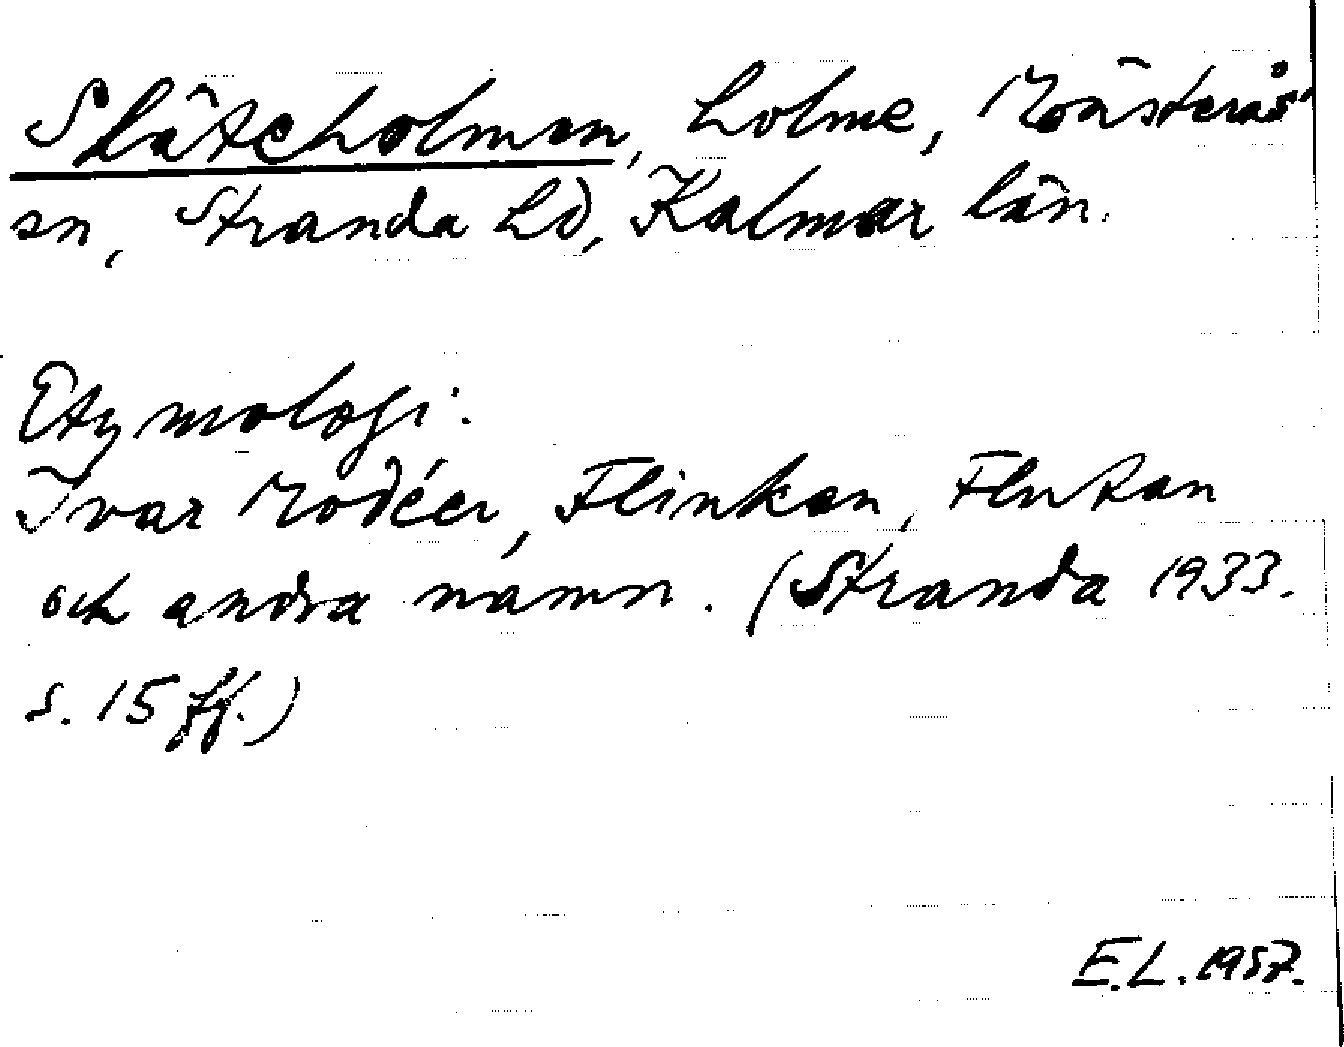 Slätcholmen, holme, Mönsterås
sn, Stranda hd, Kalmar län.
Etymologi:
Ivar Modéer, Flinken, Flutan
och andra namn. (Stranda 1933.
s. 15 ff.)
E.L. 1957.